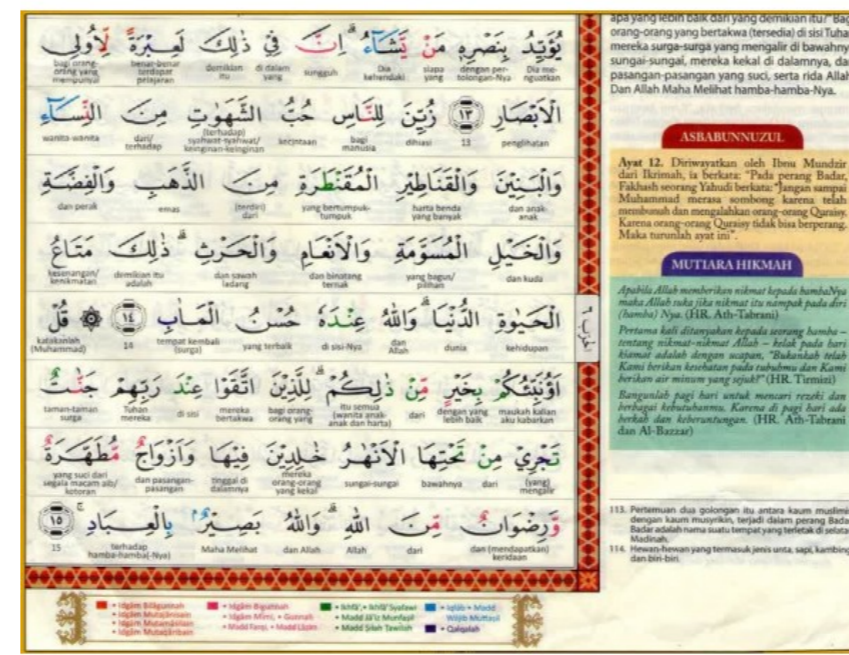 يُؤَيِّدُ بِنَصْرِهٖ مَنْ يَّشَاۤءُ ۗ اِنَّ فِيْ ذٰلِكَ لَعِبْرَةً لِّاُولِى
Dia me-nguatkan dengan per-tolongan-Nya siapa yang Dia kehendaki sungguh di dalam yang demikian itu benar-benar terdapat pelajaran bagi orang-orang yang mempunyai
الْاَبْصَارِ ١٣ زُيِّنَ لِلنَّاسِ حُبُّ الشَّهَوٰتِ مِنَ النِّسَاۤءِ
penglihatan 13 dihiasi bagi manusia kecintaan (terhadap) syahwat-syahwat/ keinginan-keinginan dari/ terhadap wanita-wanita
وَالْبَنِيْنَ وَالْقَنَاطِيْرِ الْمُقَنْطَرَةِ مِنَ الذَّهَبِ وَالْفِضَّةِ
dan anak-anak harta benda yang banyak yang bertumpuk-tumpuk (terdiri) dari emas dan perak
وَالْخَيْلِ الْمُسَوَّمَةِ وَالْاَنْعَامِ وَالْحَرْثِ ۗ ذٰلِكَ مَتَاعُ
dan kuda yang bagus/ pilihan dan binatang ternak dan sawah ladang demikian itu adalah kesenangan/ kenikmatan
الْحَيٰوةِ الدُّنْيَا ۗ وَاللّٰهُ عِنْدَهٗ حُسْنُ الْمَاٰبِ ١٤ ۞ قُلْ
kehidupan dunia dan Allah di sisi-Nya yang terbaik tempat kembali (surga) 14 katakanlah (Muhammad)
اَؤُنَبِّئُكُمْ بِخَيْرٍ مِّنْ ذٰلِكُمْ ۗ لِلَّذِيْنَ اتَّقَوْا عِنْدَ رَبِّهِمْ جَنّٰتٌ
maukah kalian aku kabarkan dengan yang lebih baik dari itu semua (wanita anak-anak dan harta) bagi orang-orang yang mereka bertakwa di sisi Tuhan mereka taman-taman surga
تَجْرِيْ مِنْ تَحْتِهَا الْاَنْهٰرُ خٰلِدِيْنَ فِيْهَا وَاَزْوَاجٌ مُّطَهَّرَةٌ
(yang) mengalir dari bawahnya sungai-sungai mereka orang-orang yang kekal tinggal di dalamnya dan pasangan-pasangan yang suci dari segala macam aib/ kotoran
وَّرِضْوَانٌ مِّنَ اللّٰهِ ۗ وَاللّٰهُ بَصِيْرٌۢ بِالْعِبَادِ ۚ ١٥
dan (mendapatkan) keridaan dari Allah dan Allah Maha Melihat terhadap hamba-hamba(-Nya) 15
الحزب ٦
apa yang lebih baik dari yang demikian itu?" Bag
orang-orang yang bertakwa (tersedia) di sisi Tuha
mereka surga-surga yang mengalir di bawahny
sungai-sungai, mereka kekal di dalamnya, da
pasangan-pasangan yang suci, serta rida Allah
Dan Allah Maha Melihat hamba-hamba-Nya.
ASBABUNNUZUL
Ayat 12. Diriwayatkan oleh Ibnu Mundzir
dari Ikrimah, ia berkata: "Pada perang Badar,
Fakhash seorang Yahudi berkata: "Jangan sampai
Muhammad merasa sombong karena telah
membunuh dan mengalahkan orang-orang Quraisy.
Karena orang-orang Quraisy tidak bisa berperang.
Maka turunlah ayat ini".
MUTIARA HIKMAH
Apabila Allah memberikan nikmat kepada hambaNya
maka Allah suka jika nikmat itu nampak pada diri
(hamba) Nya. (HR. Ath-Tabrani)
Pertama kali ditanyakan kepada seorang hamba –
tentang nikmat-nikmat Allah – kelak pada hari
kiamat adalah dengan ucapan, "Bukankah telah
Kami berikan kesehatan pada tubuhmu dan Kami
berikan air minum yang sejuk?" (HR. Tirmizi)
Bangunlah pagi hari untuk mencari rezeki dan
berbagai kebutuhanmu. Karena di pagi hari ada
berkah dan keberuntungan. (HR. Ath-Tabrani
dan Al-Bazzar)
113. Pertemuan dua golongan itu antara kaum muslimi
dengan kaum musyrikin, terjadi dalam perang Bada
Badar adalah nama suatu tempat yang terletak di selata
Madinah.
114. Hewan-hewan yang termasuk jenis unta, sapi, kambing
dan biri-biri.
• Idgâm Bilâgunnah
• Idgâm Mutajânisain
• Idgâm Mutamâsilain
• Idgâm Mutaqâribain
• Idgâm Bigunnah
• Idgâm Mimi, • Gunnah
• Madd Farqi, • Madd Lâzim
• Ikhfâ', • Ikhfâ' Syafawi
• Madd Jâ'iz Munfaşil
• Madd Şilah Tawilah
• Iqlâb • Madd Wâjib Muttaşil
• Qalqalah